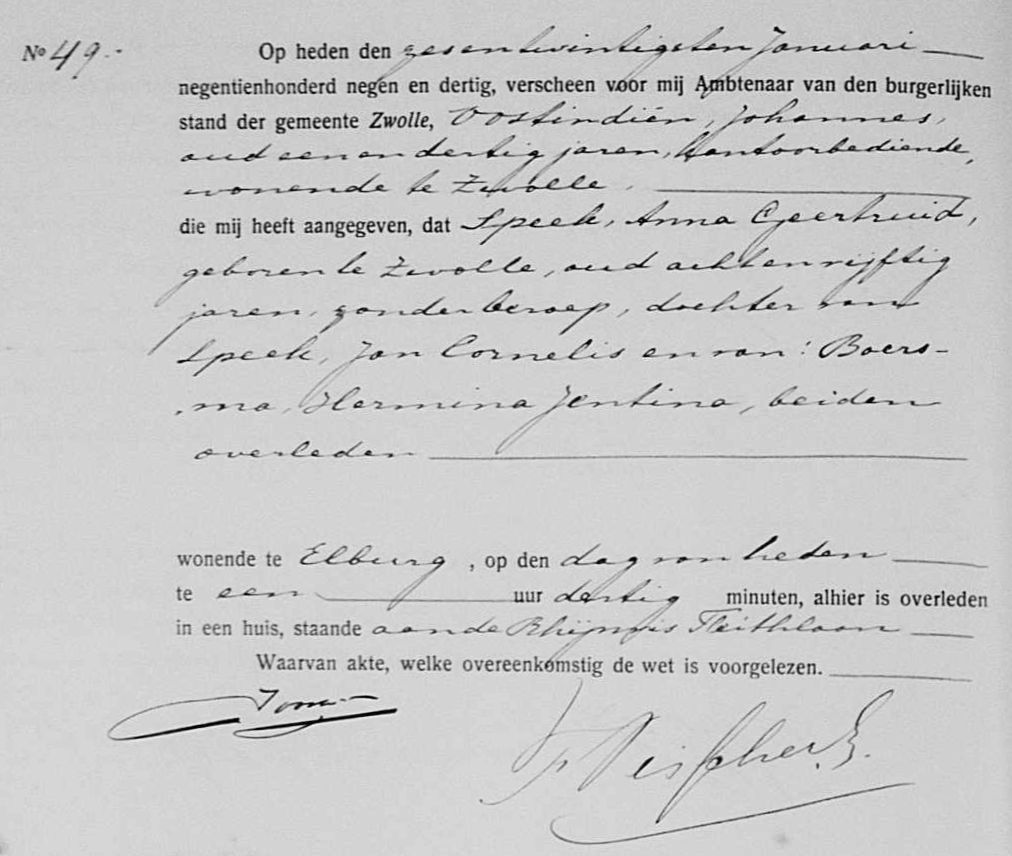 No 49.-
Op heden den zesentwintigsten Januari
negentienhonderd negen en dertig, verscheen voor mij Ambtenaar van den burgerlijken
stand der gemeente Zwolle, Oostindiën, Johannes,
oud een en dertig jaren, kantoorbediende,
wonende te Zwolle.
die mij heeft aangegeven, dat Speek, Anna Geertruid,
geboren te Zwolle, oud achtenvijftig
jaren, zonder beroep, dochter van
Speek, Jan Cornelis en van: Boers-
ma, Hermina Jentina, beiden
overleden
wonende te Elburg, op den dag van heden
te een uur dertig minuten, alhier is overleden
in een huis, staande aan de Rhijnvis Feithlaan
Waarvan akte, welke overeenkomstig de wet is voorgelezen.